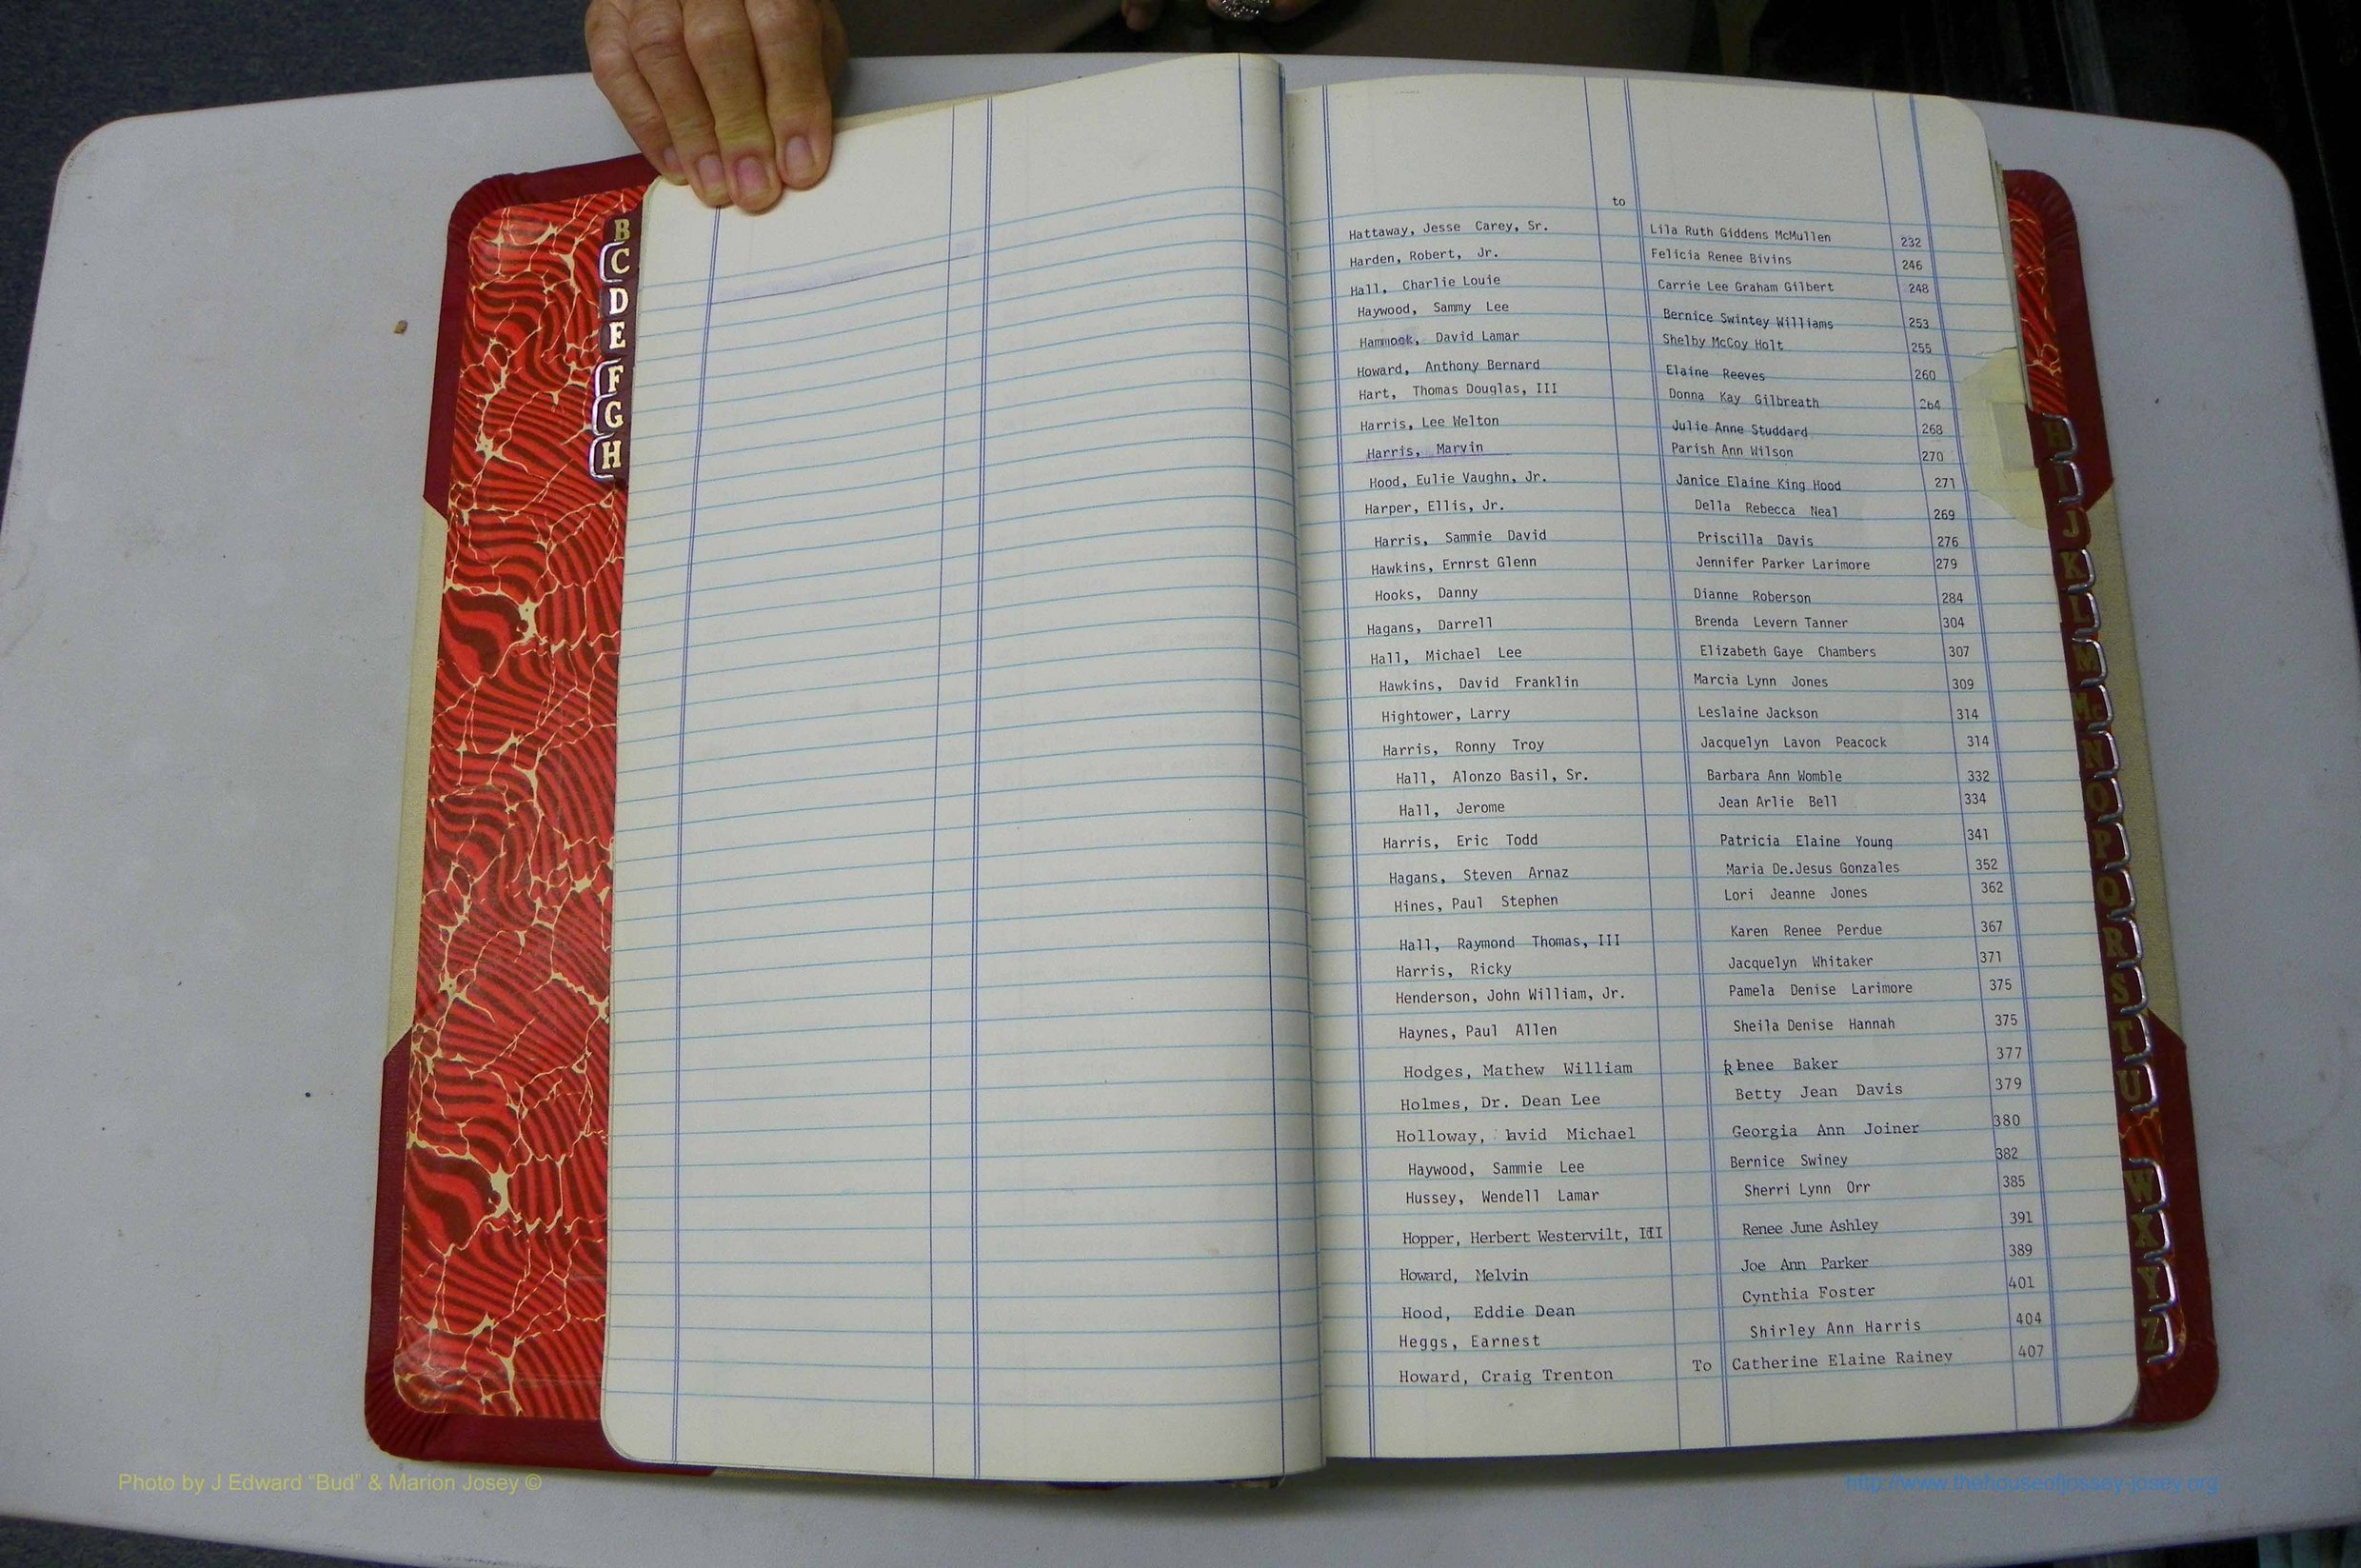 B
C
D
E
F
G
H
to
Hattaway, Jesse Carey, Sr. Lila Ruth Giddens McMullen 232
Harden, Robert, Jr. Felicia Renee Bivins 246
Hall, Charlie Louie Carrie Lee Graham Gilbert 248
Haywood, Sammy Lee Bernice Swintey Williams 253
Hammock, David Lamar Shelby McCoy Holt 255
Howard, Anthony Bernard Elaine Reeves 260
Hart, Thomas Douglas, III Donna Kay Gilbreath 264
Harris, Lee Welton Julie Anne Studdard 268
Harris, Marvin Parish Ann Wilson 270
Hood, Eulie Vaughn, Jr. Janice Elaine King Hood 271
Harper, Ellis, Jr. Della Rebecca Neal 269
Harris, Sammie David Priscilla Davis 276
Hawkins, Ernrst Glenn Jennifer Parker Larimore 279
Hooks, Danny Dianne Roberson 284
Hagans, Darrell Brenda Levern Tanner 304
Hall, Michael Lee Elizabeth Gaye Chambers 307
Hawkins, David Franklin Marcia Lynn Jones 309
Hightower, Larry Leslaine Jackson 314
Harris, Ronny Troy Jacquelyn Lavon Peacock 314
Hall, Alonzo Basil, Sr. Barbara Ann Womble 332
Hall, Jerome Jean Arlie Bell 334
Harris, Eric Todd Patricia Elaine Young 341
Hagans, Steven Arnaz Maria De.Jesus Gonzales 352
Hines, Paul Stephen Lori Jeanne Jones 362
Hall, Raymond Thomas, III Karen Renee Perdue 367
Harris, Ricky Jacquelyn Whitaker 371
Henderson, John William, Jr. Pamela Denise Larimore 375
Haynes, Paul Allen Sheila Denise Hannah 375
Hodges, Mathew William Renee Baker 377
Holmes, Dr. Dean Lee Betty Jean Davis 379
Holloway, David Michael Georgia Ann Joiner 380
Haywood, Sammie Lee Bernice Swiney 382
Hussey, Wendell Lamar Sherri Lynn Orr 385
Hopper, Herbert Westervilt, III Renee June Ashley 391
Howard, Melvin Joe Ann Parker 389
Hood, Eddie Dean Cynthia Foster 401
Heggs, Earnest Shirley Ann Harris 404
Howard, Craig Trenton To Catherine Elaine Rainey 407
H
I
J
K
L
M
Mc
N
O
P
Q
R
S
T
U
W
X
Y
Z
Photo by J Edward “Bud” & Marion Josey ©
http://www.thehouseofjossey-josey.org